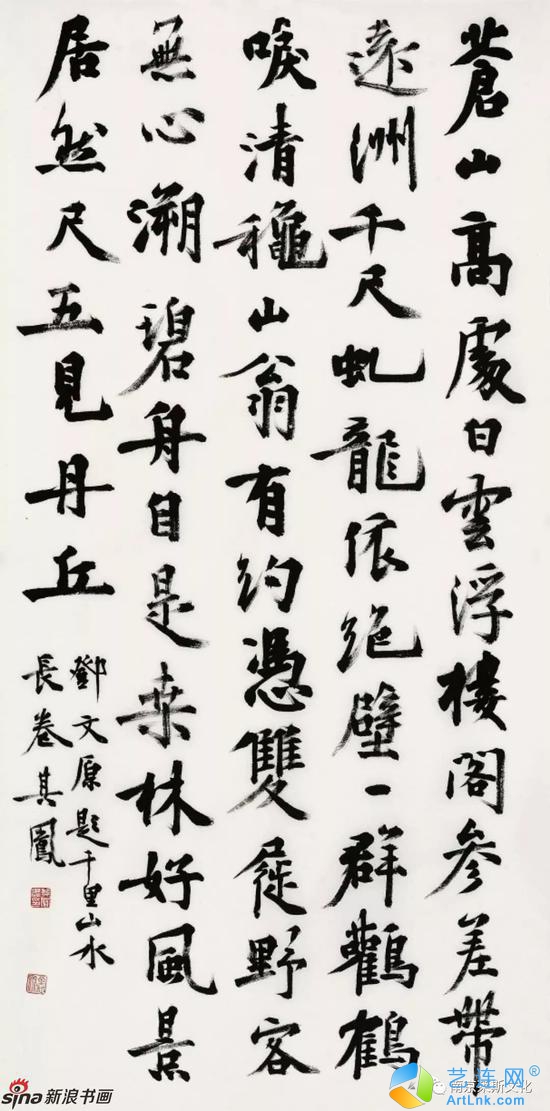 蒼山高處白雲浮樓閣參差帶
遠洲千尺虬龍依絶壁一群鸛鶴
唳清穐山翁有約憑雙屐野客
無心溯碧舟自是桒林好風景
居然尺五見丹丘
鄧文原題千里山水
長卷其鳳
sina新浪书画
艺连网®
ArtLnk.com
南京莱斯文化